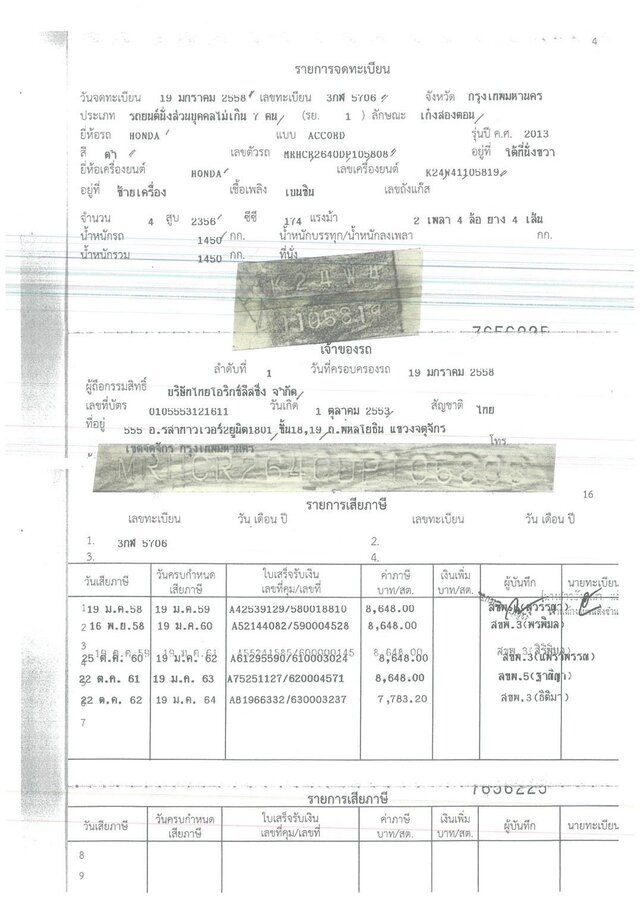 4
รายการจดทะเบียน
วันจดทะเบียน 19 มกราคม 2558 เลขทะเบียน 3กฬ 5706 จังหวัด กรุงเทพมหานคร
ประเภท รถยนต์นั่งส่วนบุคคลไม่เกิน 7 คน (รย. 1 ) ลักษณะ เก๋งสองตอน
ยี่ห้อรถ HONDA แบบ ACCORD รุ่นปี ค.ศ. 2013
สี ดำ เลขตัวรถ MRHCR2640DP105808 อยู่ที่ ใต้ที่นั่งขวา
ยี่ห้อเครื่องยนต์ HONDA เลขเครื่องยนต์ K24W41105819
อยู่ที่ ซ้ายเครื่อง เชื้อเพลิง เบนซิน เลขถังแก๊ส
จำนวน 4 สูบ 2356 ซีซี 174 แรงม้า 2 เพลา 4 ล้อ ยาง 4 เส้น
น้ำหนักรถ 1450 กก. น้ำหนักบรรทุก/น้ำหนักลงเพลา กก.
น้ำหนักรวม 1450 กก. ที่นั่ง
K24W4
1105819
เจ้าของรถ
ลำดับที่ 1 วันที่ครอบครองรถ 19 มกราคม 2558
ผู้ถือกรรมสิทธิ์ บริษัทไทยโอริกซ์ลีสซิ่ง จำกัด
เลขที่บัตร 0105553121611 วันเกิด 1 ตุลาคม 2553 สัญชาติ ไทย
ที่อยู่ 555 อ.รสาทาวเวอร์2ยูนิต1801 ชั้น18,19 ถ.พหลโยธิน แขวงจตุจักร
เขตจตุจักร กรุงเทพมหานคร โทร.
MRHCR2640DP105808
16
รายการเสียภาษี
เลขทะเบียน วัน เดือน ปี เลขทะเบียน วัน เดือน ปี
1. 3กฬ 5706 2.
3. 4.
วันเสียภาษี วันครบกำหนดเสียภาษี ใบเสร็จรับเงิน เลขที่คุม/เลขที่ ค่าภาษี บาท/สต. เงินเพิ่ม บาท/สต. ผู้บันทึก นายทะเบียน
1 19 ม.ค.58 19 ม.ค.59 A42539129/580018810 8,648.00
2 16 พ.ย.58 19 ม.ค.60 A52144082/590004528 8,648.00 สขพ.3(พรพิมล)
3 19 ม.ค. 61 8,648.00
4 25 ต.ค. 60 19 ม.ค. 62 A61295590/610003024 8,648.00
5 22 ต.ค. 61 19 ม.ค. 63 A75251127/620004571 8,648.00 สขพ.5(ฐาสิญา)
6 22 ต.ค. 62 19 ม.ค. 64 A81966332/630003237 7,783.20 สขพ.3(ธิติมา)
7
7656225
รายการเสียภาษี
วันเสียภาษี วันครบกำหนดเสียภาษี ใบเสร็จรับเงิน เลขที่คุม/เลขที่ ค่าภาษี บาท/สต. เงินเพิ่ม บาท/สต. ผู้บันทึก นายทะเบียน
8
9